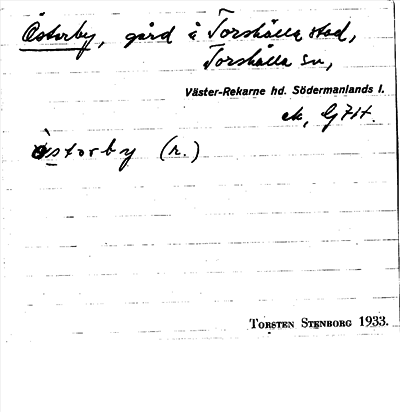 Österby, gård i Torshälla stad,
Torshälla sn,
Väster-Rekarne hd. Södermanlands l.
ek,
österby (r.)
TORSTEN STENBORG 1933.